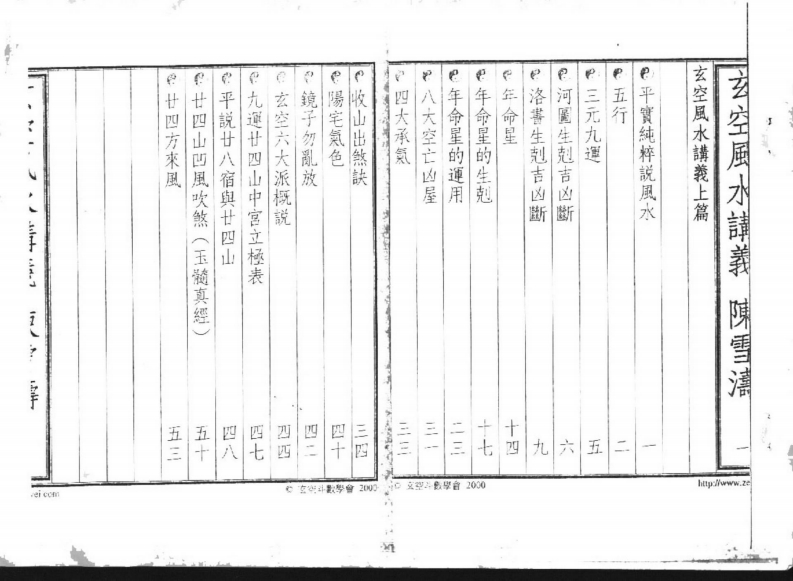 玄空風水講義 陳雪濤 一
玄空風水講義上篇
平實純粹說風水 一
五行 二
三元九運 五
河圖生剋吉凶斷 六
洛書生剋吉凶斷 九
年命星 十四
年命星的生剋 十七
年命星的運用 二三
八大空亡凶屋 三一
四大承氣 三三
http://www.ze
© 玄空斗數學會 2000
收山出煞訣 三四
陽宅氣色 四十
鏡子勿亂放 四二
玄空六大派概說 四四
九運廿四山中宮立極表 四七
平說廿八宿與廿四山 四八
廿四山凹風吹煞（玉髓真經） 五十
廿四方來風 五三
© 玄空斗數學會 2000
vei com